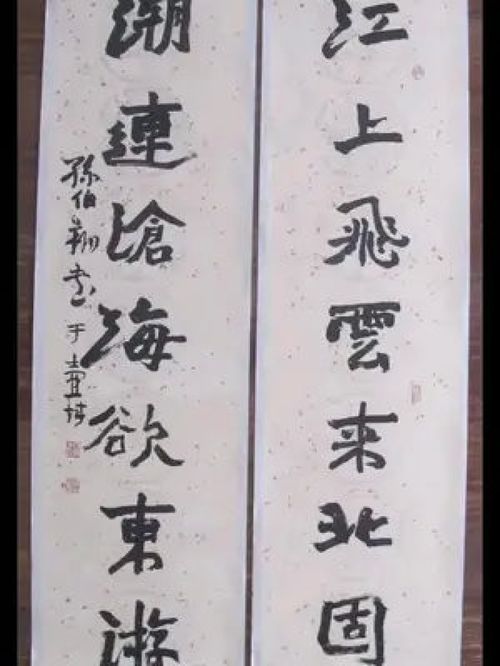 江上飛雲来北固
潮連滄海欲東游
孫伯翔書于